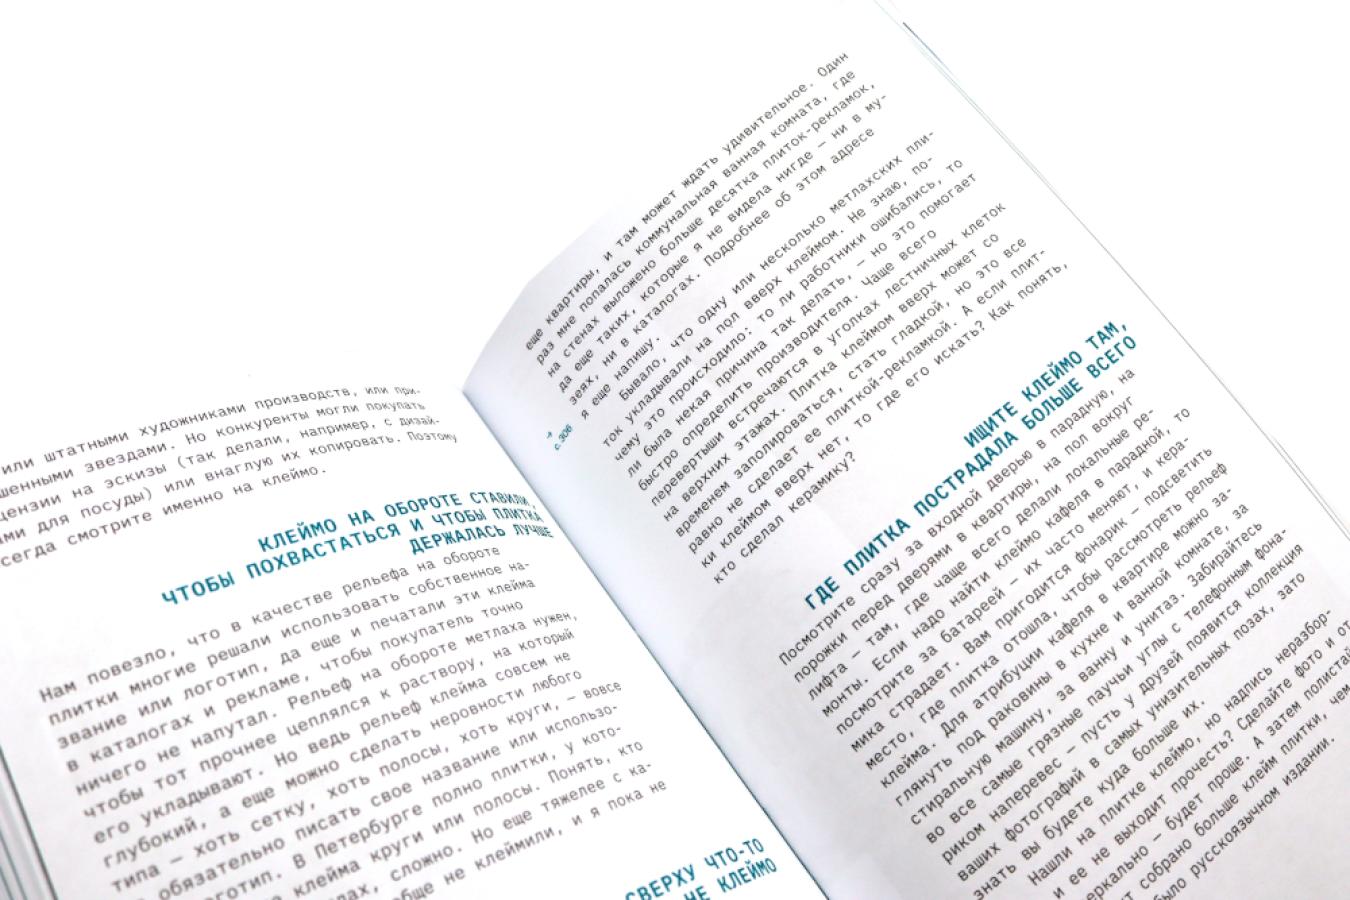 или штатными художниками производств, или при-
шенными звездами. Но конкуренты могли покупать
цензии на эскизы (так делали, например, с дизай-
ами для посуды) или внаглую их копировать. Поэтому
сегда смотрите именно на клеймо.
КЛЕЙМО НА ОБОРОТЕ СТАВИЛИ,
ЧТОБЫ ПОХВАСТАТЬСЯ И ЧТОБЫ ПЛИТКА
ДЕРЖАЛАСЬ ЛУЧШЕ
Нам повезло, что в качестве рельефа на обороте
плитки многие решали использовать собственное на-
звание или логотип, да еще и печатали эти клейма
в каталогах и рекламе, чтобы покупатель точно
ничего не напутал. Рельеф на обороте метлаха нужен,
чтобы тот прочнее цеплялся к раствору, на который
его укладывают. Но ведь рельеф клейма совсем не
глубокий, а еще можно сделать неровности любого
типа — хоть сетку, хоть полосы, хоть круги, — вовсе
обязательно писать свое название или использо-
оготип. В Петербурге полно плитки, у кото-
клейма круги или полосы. Понять, кто
дах, сложно. Но еще тяжелее с ка-
обще не клеймили, и я пока не
СВЕРХУ ЧТО-ТО
НЕ КЛЕЙМО
еще квартиры, и там может ждать удивительное. Один
раз мне попалась коммунальная ванная комната, где
на стенах выложено больше десятка плиток-рекламок,
да еще таких, которые я не видела нигде — ни в му-
зеях, ни в каталогах. Подробнее об этом адресе
я еще напишу.
→
с.306
Бывало, что одну или несколько метлахских пли-
ток укладывали на пол вверх клеймом. Не знаю, по-
чему это происходило: то ли работники ошибались, то
ли была некая причина так делать, — но это помогает
быстро определить производителя. Чаще всего
перевертыши встречаются в уголках лестничных клеток
на верхних этажах. Плитка клеймом вверх может со
временем заполироваться, стать гладкой, но это все
равно не сделает ее плиткой-рекламкой. А если плит-
ки клеймом вверх нет, то где его искать? Как понять,
кто сделал керамику?
ИЩИТЕ КЛЕЙМО ТАМ,
ГДЕ ПЛИТКА ПОСТРАДАЛА БОЛЬШЕ ВСЕГО
Посмотрите сразу за входной дверью в парадную, на
порожки перед дверями в квартиры, на пол вокруг
лифта — там, где чаще всего делали локальные ре-
монты. Если надо найти клеймо кафеля в парадной, то
посмотрите за батареей — их часто меняют, и кера-
мика страдает. Вам пригодится фонарик — подсветить
место, где плитка отошла, чтобы рассмотреть рельеф
клейма. Для атрибуции кафеля в квартире можно за-
глянуть под раковины в кухне и ванной комнате, за
стиральную машину, за ванну и унитаз. Забирайтесь
во все самые грязные паучьи углы с телефонным фона-
риком наперевес — пусть у друзей появится коллекция
ваших фотографий в самых унизительных позах, зато
знать вы будете куда больше их.
Нашли на плитке клеймо, но надпись неразбор-
и ее не выходит прочесть? Сделайте фото и от
еркально — будет проще. А затем полистай
кт собрано больше клейм плитки, чем
было русскоязычном издании.